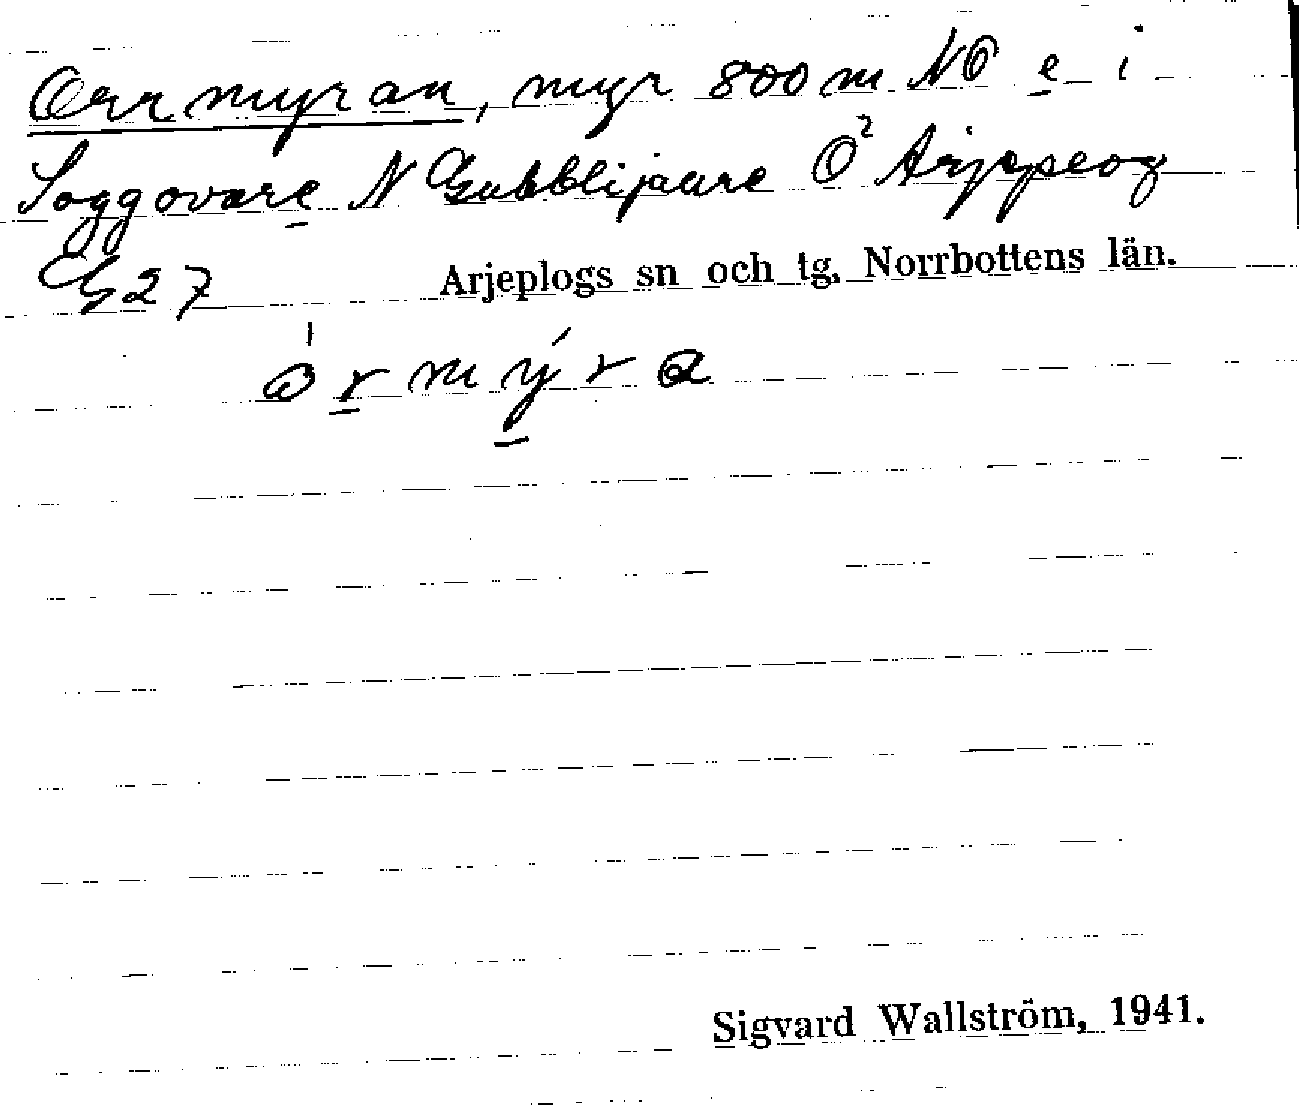 Orrmyran, myr 800 m NO e i
Soggovare N Gubblijaure O² Arjepeog
G27 Arjeplogs sn och tg, Norrbottens län.
órmýra
Sigvard Wallström, 1941.